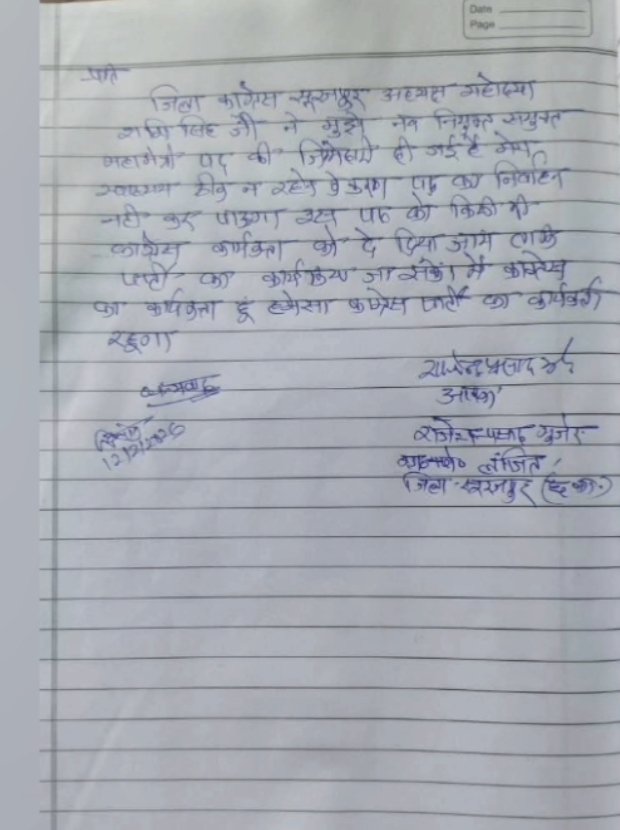 Date
Page
प्रति
जिला कांग्रेस सूरजपुर अध्यक्ष महोदया
शशि सिंह जी ने मुझे नव नियुक्त संयुक्त
महामंत्री पद की जिम्मेदारी दी गई है मेरा
स्वास्थ्य ठीक न रहने के कारण पद का निर्वाहन
नही कर पाउगा इस पद को किसी भी
कांग्रेस कार्यकर्ता को दे दिया जाय ताकि
पार्टी का कार्य किया जा सके। मैं कांग्रेस
का कार्यकर्ता हूं हमेसा कांग्रेस पार्टी का कार्यकर्ता
रहूगा
धन्यवाद
दिनांक
12/2/2026
राजेन्द्र प्रसाद
आपका
राजेन्द्र प्रसाद गुर्जर
जिला सूरजपुर (छ.ग.)